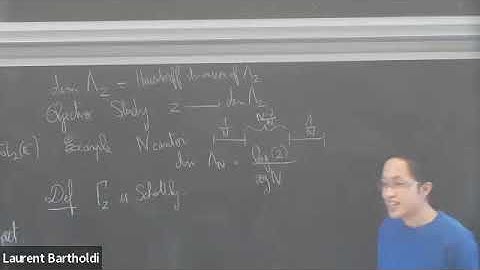 dim Λ_z = Hausdorff dimension of Λ_z
Objective Study z ⟶ dim Λ_z
1/N N-2/N 1/N
Example N cantor
dim Λ_N = log(2)/log N
Def Γ_z is Schottky
Laurent Bartholdi